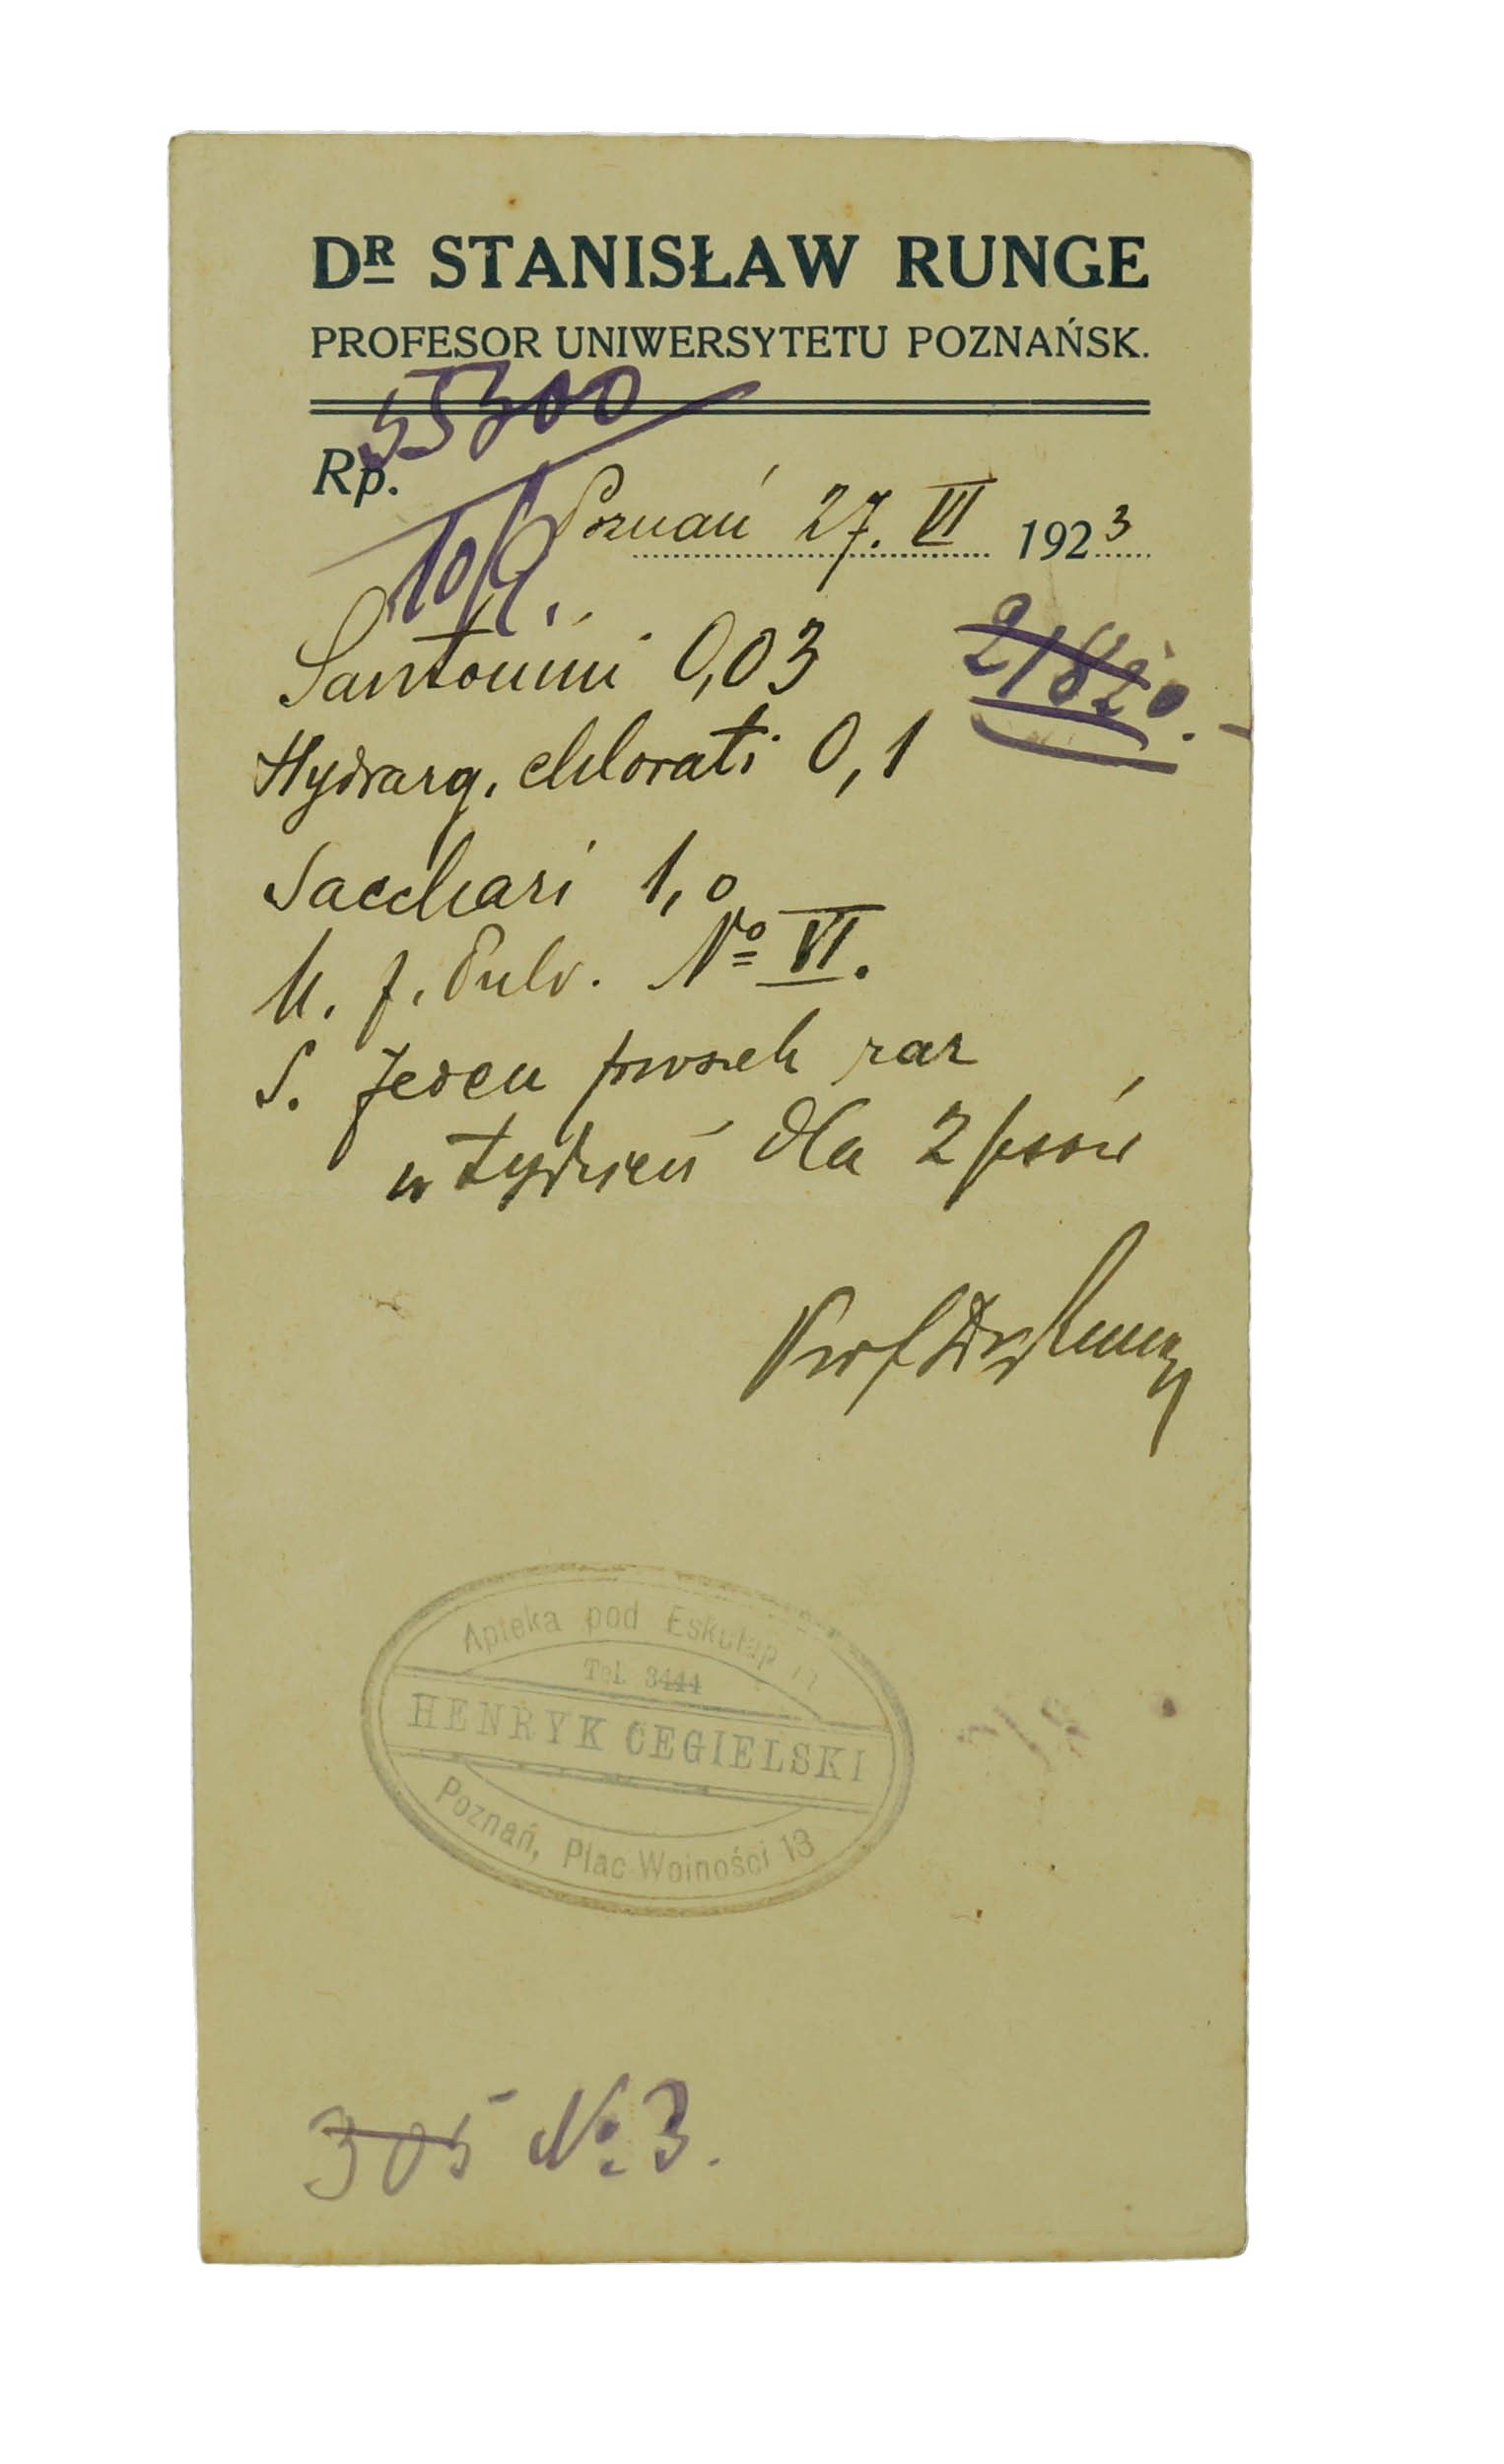 DR STANISŁAW RUNGE
PROFESOR UNIWERSYTETU POZNAŃSK.
55300
Rp.
10/
Poznań 27. VI 1923
Santonini 0,03
21820.
Hydrarg. chlorati 0,1
Sacchari 1,0
M. f. Pulv. Nº VI.
S. Jeden proszek raz
w tydzień dla 2 psów
Prof Dr Runge
Apteka pod Eskulap
Tel. 3444
HENRYK CEGIELSKI
Poznań, Plac Wolności 13
305 No 3.